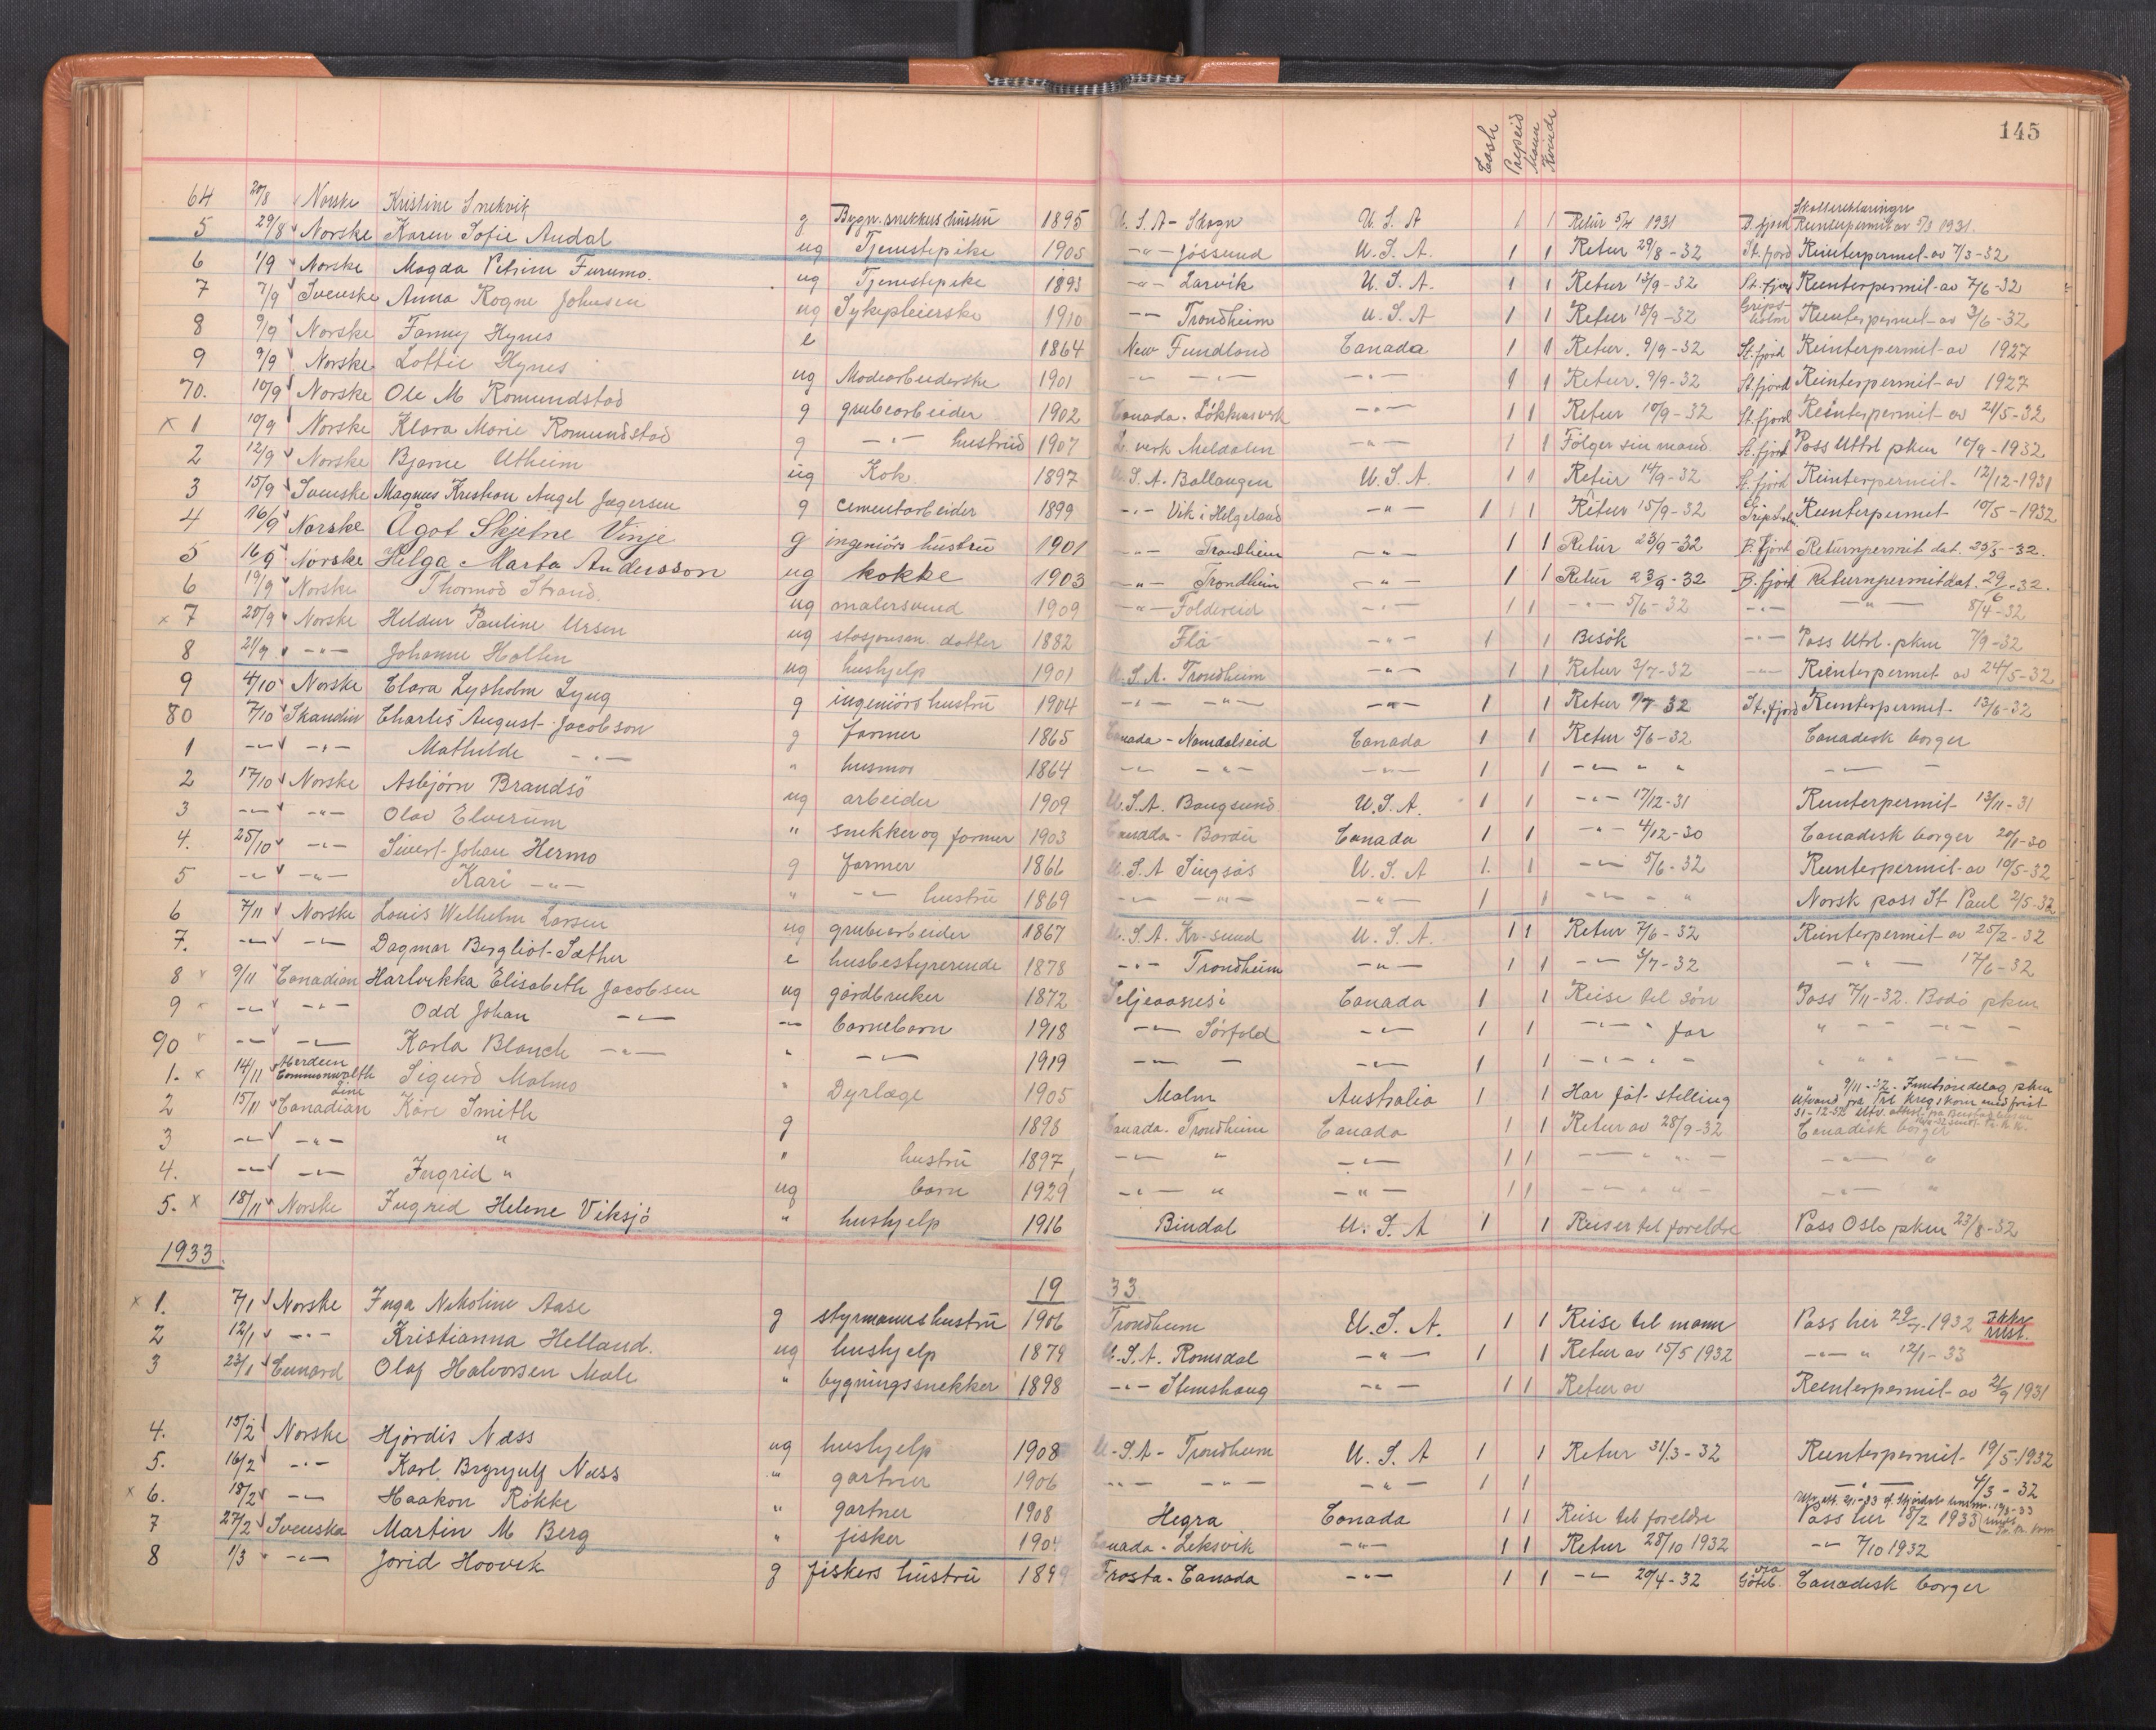 145
Cash Prepeid Mann Kvinde
64 20/8 Norske Kristine Snekvik g Bygn. snekkers hustru 1895 U.S.A - Skogn U.S.A 1 1 Retur 5/4 1931 B. fjord Reinterpermit av 5/3 1931.
5 29/8 Norske Karen Sofie Andal ug Tjenestepike 1905 -"- Jössund U.S.A. 1 1 Retur 29/8-32 St. fjord Reinterpermit av 7/3-32
6 1/9 Norske Magda Petrine Furumo. ug Tjenestepike 1893 -"- Larvik U.S.A. 1 1 Retur 13/9-32 St. fjord Reinterpermit av 7/6-32
7 7/9 Svenske Anna Rogne Johnsen ug Sykepleierske 1910 -"- Trondheim U.S.A 1 1 Retur 18/9-32 Gripsholm Reinterpermit av 3/6-32
8 9/9 Norske Fanny Hynes e 1864 New Fundland Canada 1 1 Retur. 9/9-32 St. fjord Reinterpermit av 1927
9 9/9 Norske Lottie Hynes ug Modearbeiderske 1901 -"- -"- -"- 1 1 Retur. 9/9-32 St. fjord Reinterpermit av 1927
70. 10/9 Norske Ole M Romundstad g grubearbeider 1902 Canada. Lökkensverk -"- 1 1 Retur 10/9-32 St. fjord Reinterpermit av 21/5-32
x 1 10/9 Norske Klara Marie Romundstad g -"- hustrud 1907 L. verk Meldalen -"- 1 1 Fölger sin mand. St. fjord Pass Uttst pken 10/9-1932
2 12/9 Norske Bjarne Utheim ug Kok 1897 U.S.A. Ballangen U.S.A. 1 1 Retur 14/9-32 St. fjord Reinterpermit- 12/12-1931
3 15/9 Svenske Magnus Kristian Angel Jægersen g cementarbeider 1899 -"- Vik i Helgeland -"- 1 1 Retur 15/9-32 Gripsholm Reinterpermit 10/5-1932
4 16/9 Norske Ågot Skjetne Vinje g ingeniörs hustru 1901 -"- Trondheim -"- 1 1 Retur 23/9-32 B. fjord Returnpermit dat. 25/5-32.
5 16/9 Norske Helga Marta Andersson ug kokke 1903 -"- Trondheim -"- 1 1 Retur 23/9-32 B. fjord Returnpermit dat. 29/6-32.
6 19/9 Norske Thormod Strand. ug malersvend 1909 -"- Foldereid -"- 1 1 -"- 5/6-32 -"- -"- 8/4-32
x 7 20/9 Norske Heldur Pauline Ursen ug stasjonsm. datter 1882 Flå -"- 1 1 Besök -"- Pass Utst. pken 7/9-32
8 21/9 -"- Johanne Holten ug hushjelp 1901 U.S.A. Trondheim -"- 1 1 Retur 2/7-32 -"- Reinterpermit av 24/5-32
9 4/10 Norske Clara Lysholm Lyng g ingeniörs hustru 1904 -"- -"- -"- 1 1 Retur 9/7 32 St. fjord Reinterpermit- 13/6-32
80 7/10 Skandin Charlis August Jacobson g farmer 1865 Canada - Namdalseid Canada 1 1 Retur 5/6-32 Canadisk borger
1 -"- -"- Mathilde -"- " husmor 1864 -"- -"- -"- 1 1 -"- " " -"- -
2 17/10 Norske Asbjörn Brandsö ug arbeider 1909 U.S.A. Bangsund U.S.A. 1 1 -"- 17/12-31 Reinterpermit- 13/11-31
3 -"- -"- Olav Elverum " snekker og farmer 1903 Canada - Bardu Canada 1 1 -"- 4/12-30 Canadisk borger 20/1-30
4. 25/10 -"- Sivert Johan Hermo g farmer 1866 U.S.A Singsås U.S.A 1. 1 -"- 5/6-32 Reinterpermit av 10/5-32
5 -"- -"- Kari -"- " -"- hustru 1869 -"- -"- -"- 1 1 -"- " " Norsk pass St Paul 2/5-32
6 7/11 Norske Louis Wilhelm Larsen ug grubearbeider 1867 U.S.A. Kr. sund U.S.A. 1 1 Retur 7/6-32 Reinterpermit av 25/2-32
7. -"- -"- Dagmar Bergliot Sæther e husbestyrerende 1878 -"- Trondheim -"- 1 1 -"- 5/7-32 -"- 17/6-32
8 x 9/11 Canadian Harlvikka Elisabeth Jacobsen ug gårdbruker 1872 Seljeåsnesi Canada 1 1 Reise til sön Pass 7/11-32. Bodö pken
9 x -"- -"- Odd Johan -"- -"- barnebarn 1918 -"- Sörfold -"- 1 1 -"- " far " - " - "
90 x -"- -"- Karla Blanch -"- " -"- 1919 -"- - -"- 1 1 -"- " - " " " -
1. x 14/11 Aberdeen Commonwealth Line Sigurd Malmo " Dyrlæge 1905 Malm Australia 1 1 Har fåt stelling " 9/11-32
2 15/11 Canadian Kåre Smith g 1893 Canada. Trondheim Canada 1 1 Retur av 28/9-32 Canadisk borger
3 -"- -"- " " hustru 1897 -"- " -"- 1 1 -"- " " -"- "
4. -"- -"- Ingrid " ug barn 1929 -"- " -"- 1 1 -"- " " -"- "
5. x 18/11 Norske Ingrid Helene Viksjö " hushjelp 1916 Bindal U.S.A 1 1 Reiser til foreldre Pass Oslo pken 23/8-32
1933.
19 33
x 1. 7/1 Norske Inga Nikoline Aase g styrmanns hustru 1906 Trondheim U.S.A. 1 1 Reise til mann Pass her 1932 Ikke reist.
2 12/1 -"- Kristianna Helland. ug hushjelp 1879 U.S.A. Romsdal -"- 1 1 Retur av 15/5 1932 -"- " 12/1-33
3 23/1 Cunard Olaf Halvorsen Male " bygningssnekker 1898 -"- Stemshaug -"- 1 1 Retur av Reinterpermit av 21/9 1931
4. 15/2 Norske Hjördis Næss ug hushjelp 1908 U.S.A - Trondheim U.S.A 1 1 Retur 31/3-32 Reinterpermit- 19/5-1932
5. 16/2 -"- Karl Brynjulf Næss " gartner 1906 -"- -"- -"- 1 1 -"- 4/3-32
x 6. 18/2 -"- Haakon Rökke " gartner 1908 Hegra Canada 1 1 Reise til foreldre Pass her 18/2 1933
7 27/2 Svenska Martin M Berg " fisker 1904 Canada - Leksvik -"- 1 1 Retur 28/10 1932 -"- 7/10 1932
8 1/3 -"- Jorid Hoovik g fiskers hustru 1899 Frosta - Canada -"- 1 1 -"- 20/4-32 via Göteb. Canadisk borger